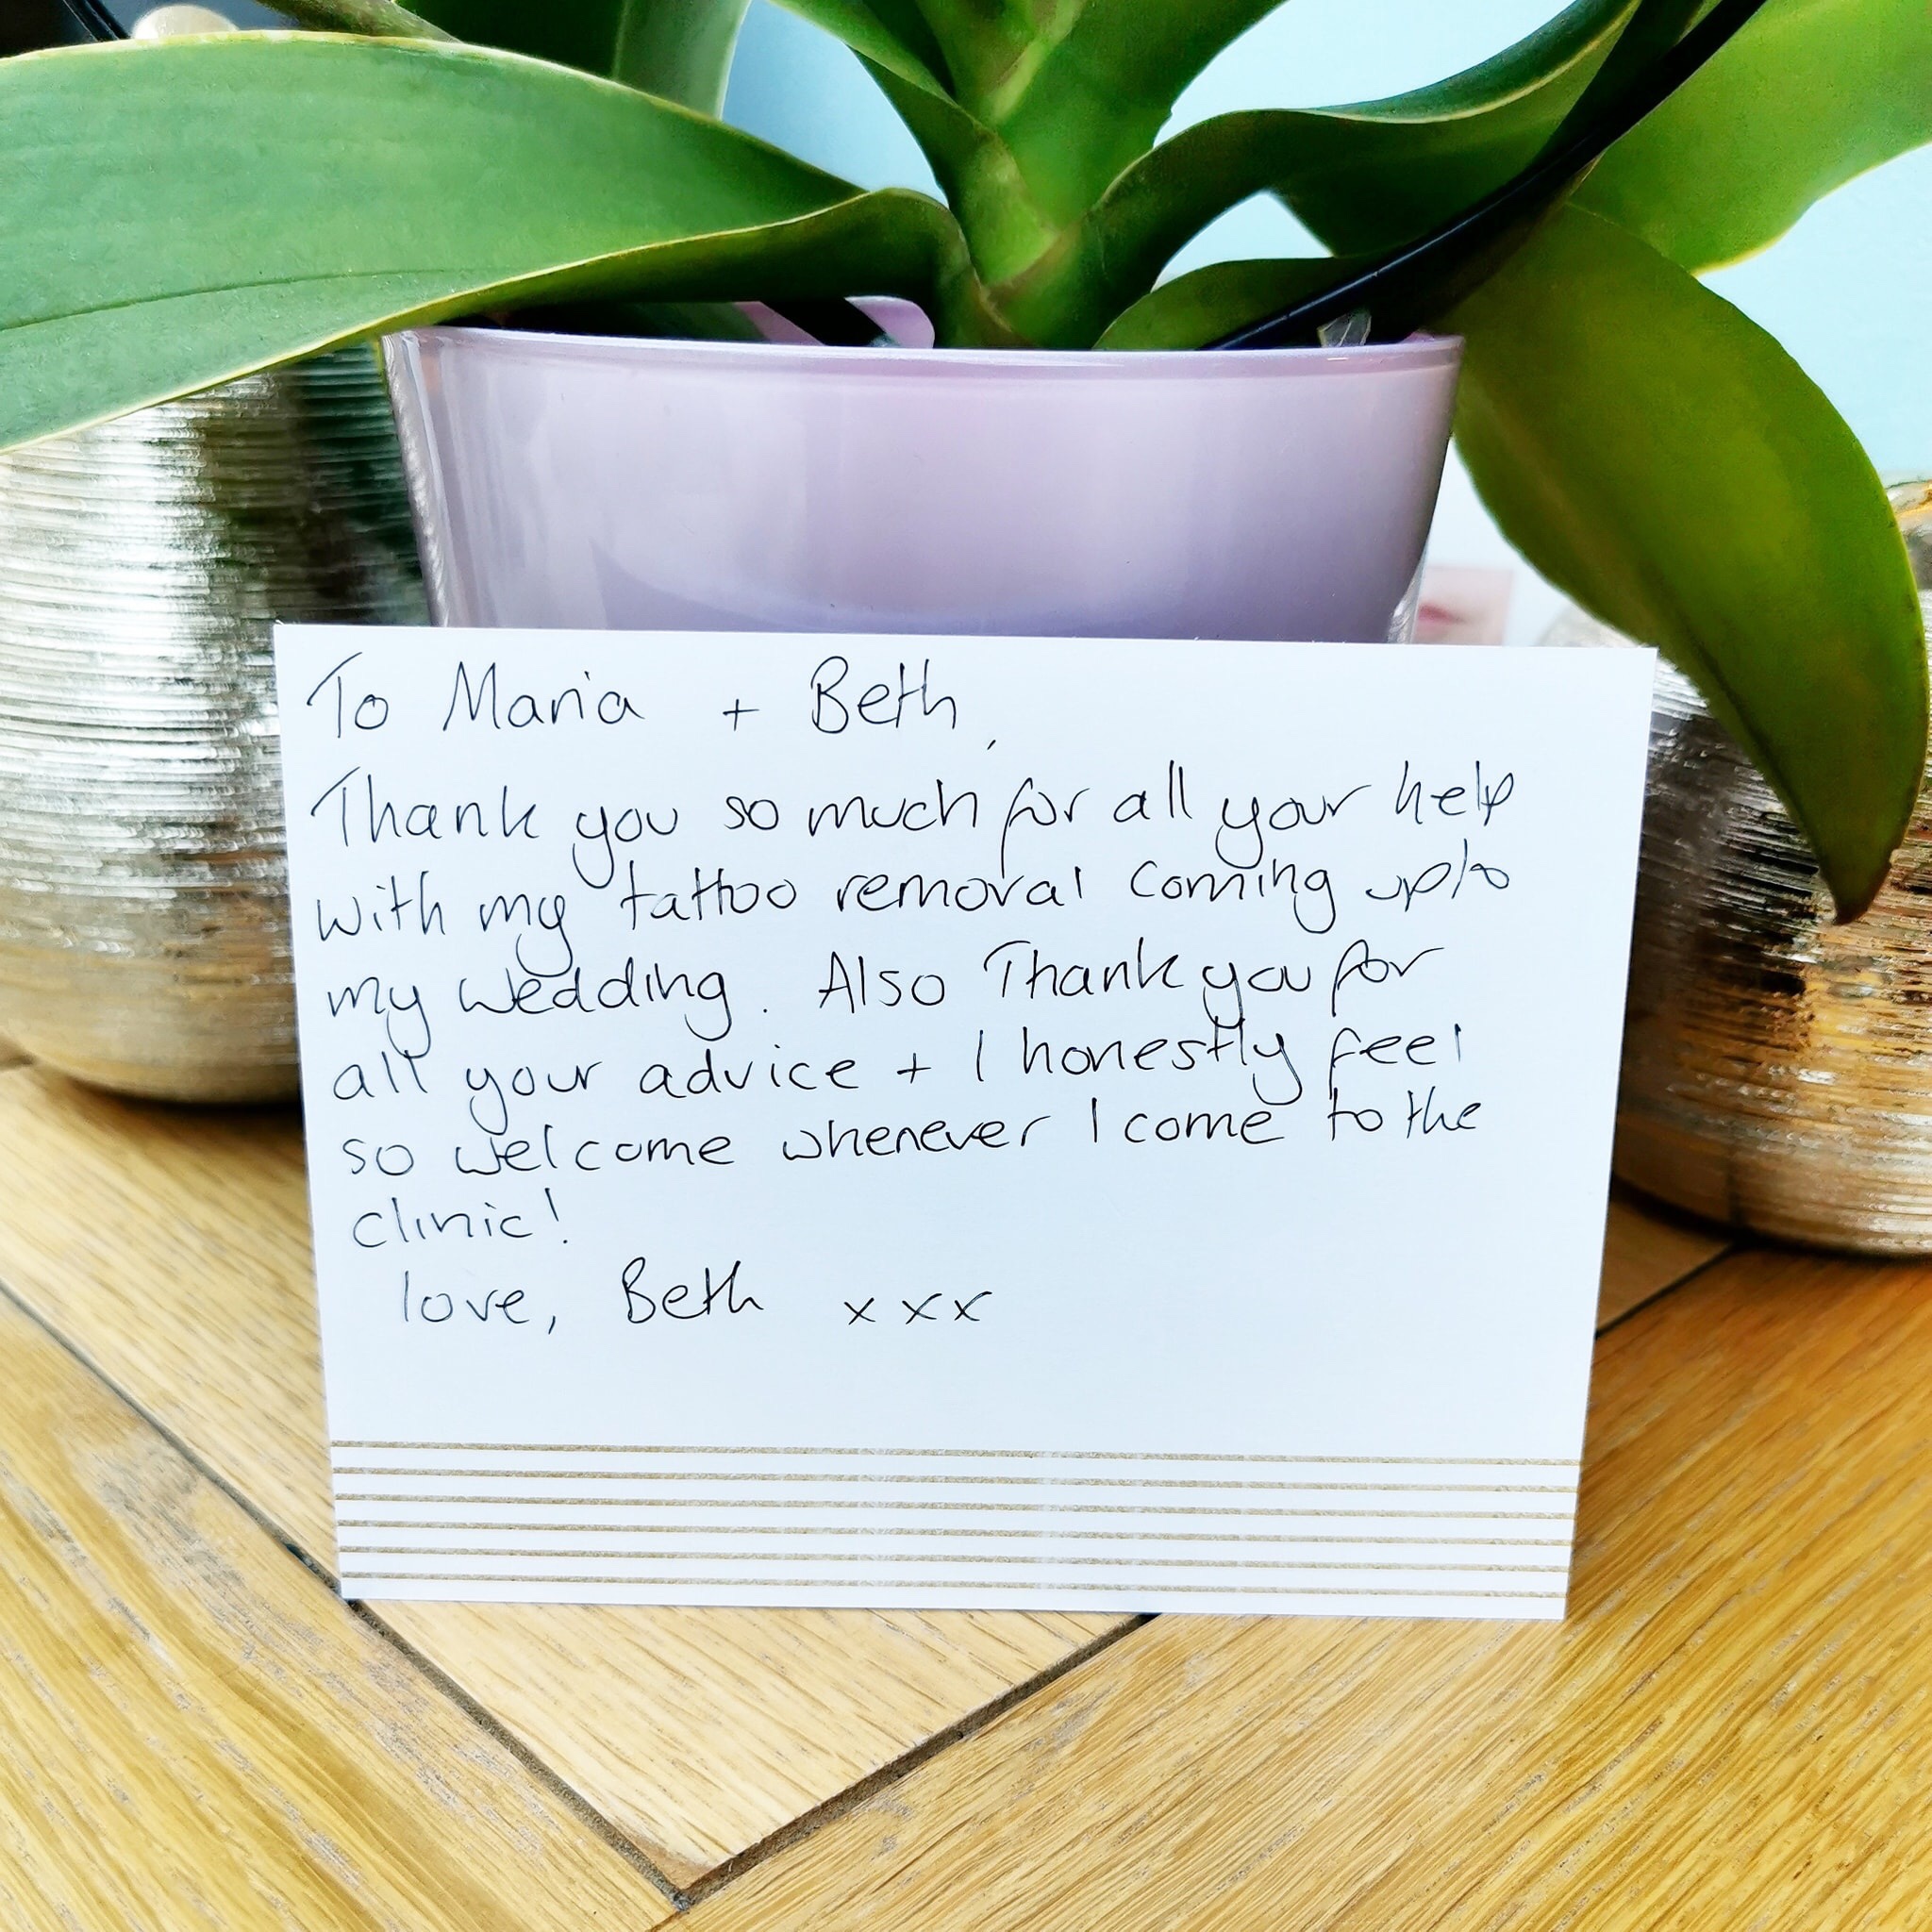 To Maria + Beth,
Thank you so much for all your help
with my tattoo removal coming up to
my wedding. Also Thank you for
all your advice + I honestly feel
so welcome whenever I come to the
clinic!
love, Beth xxx